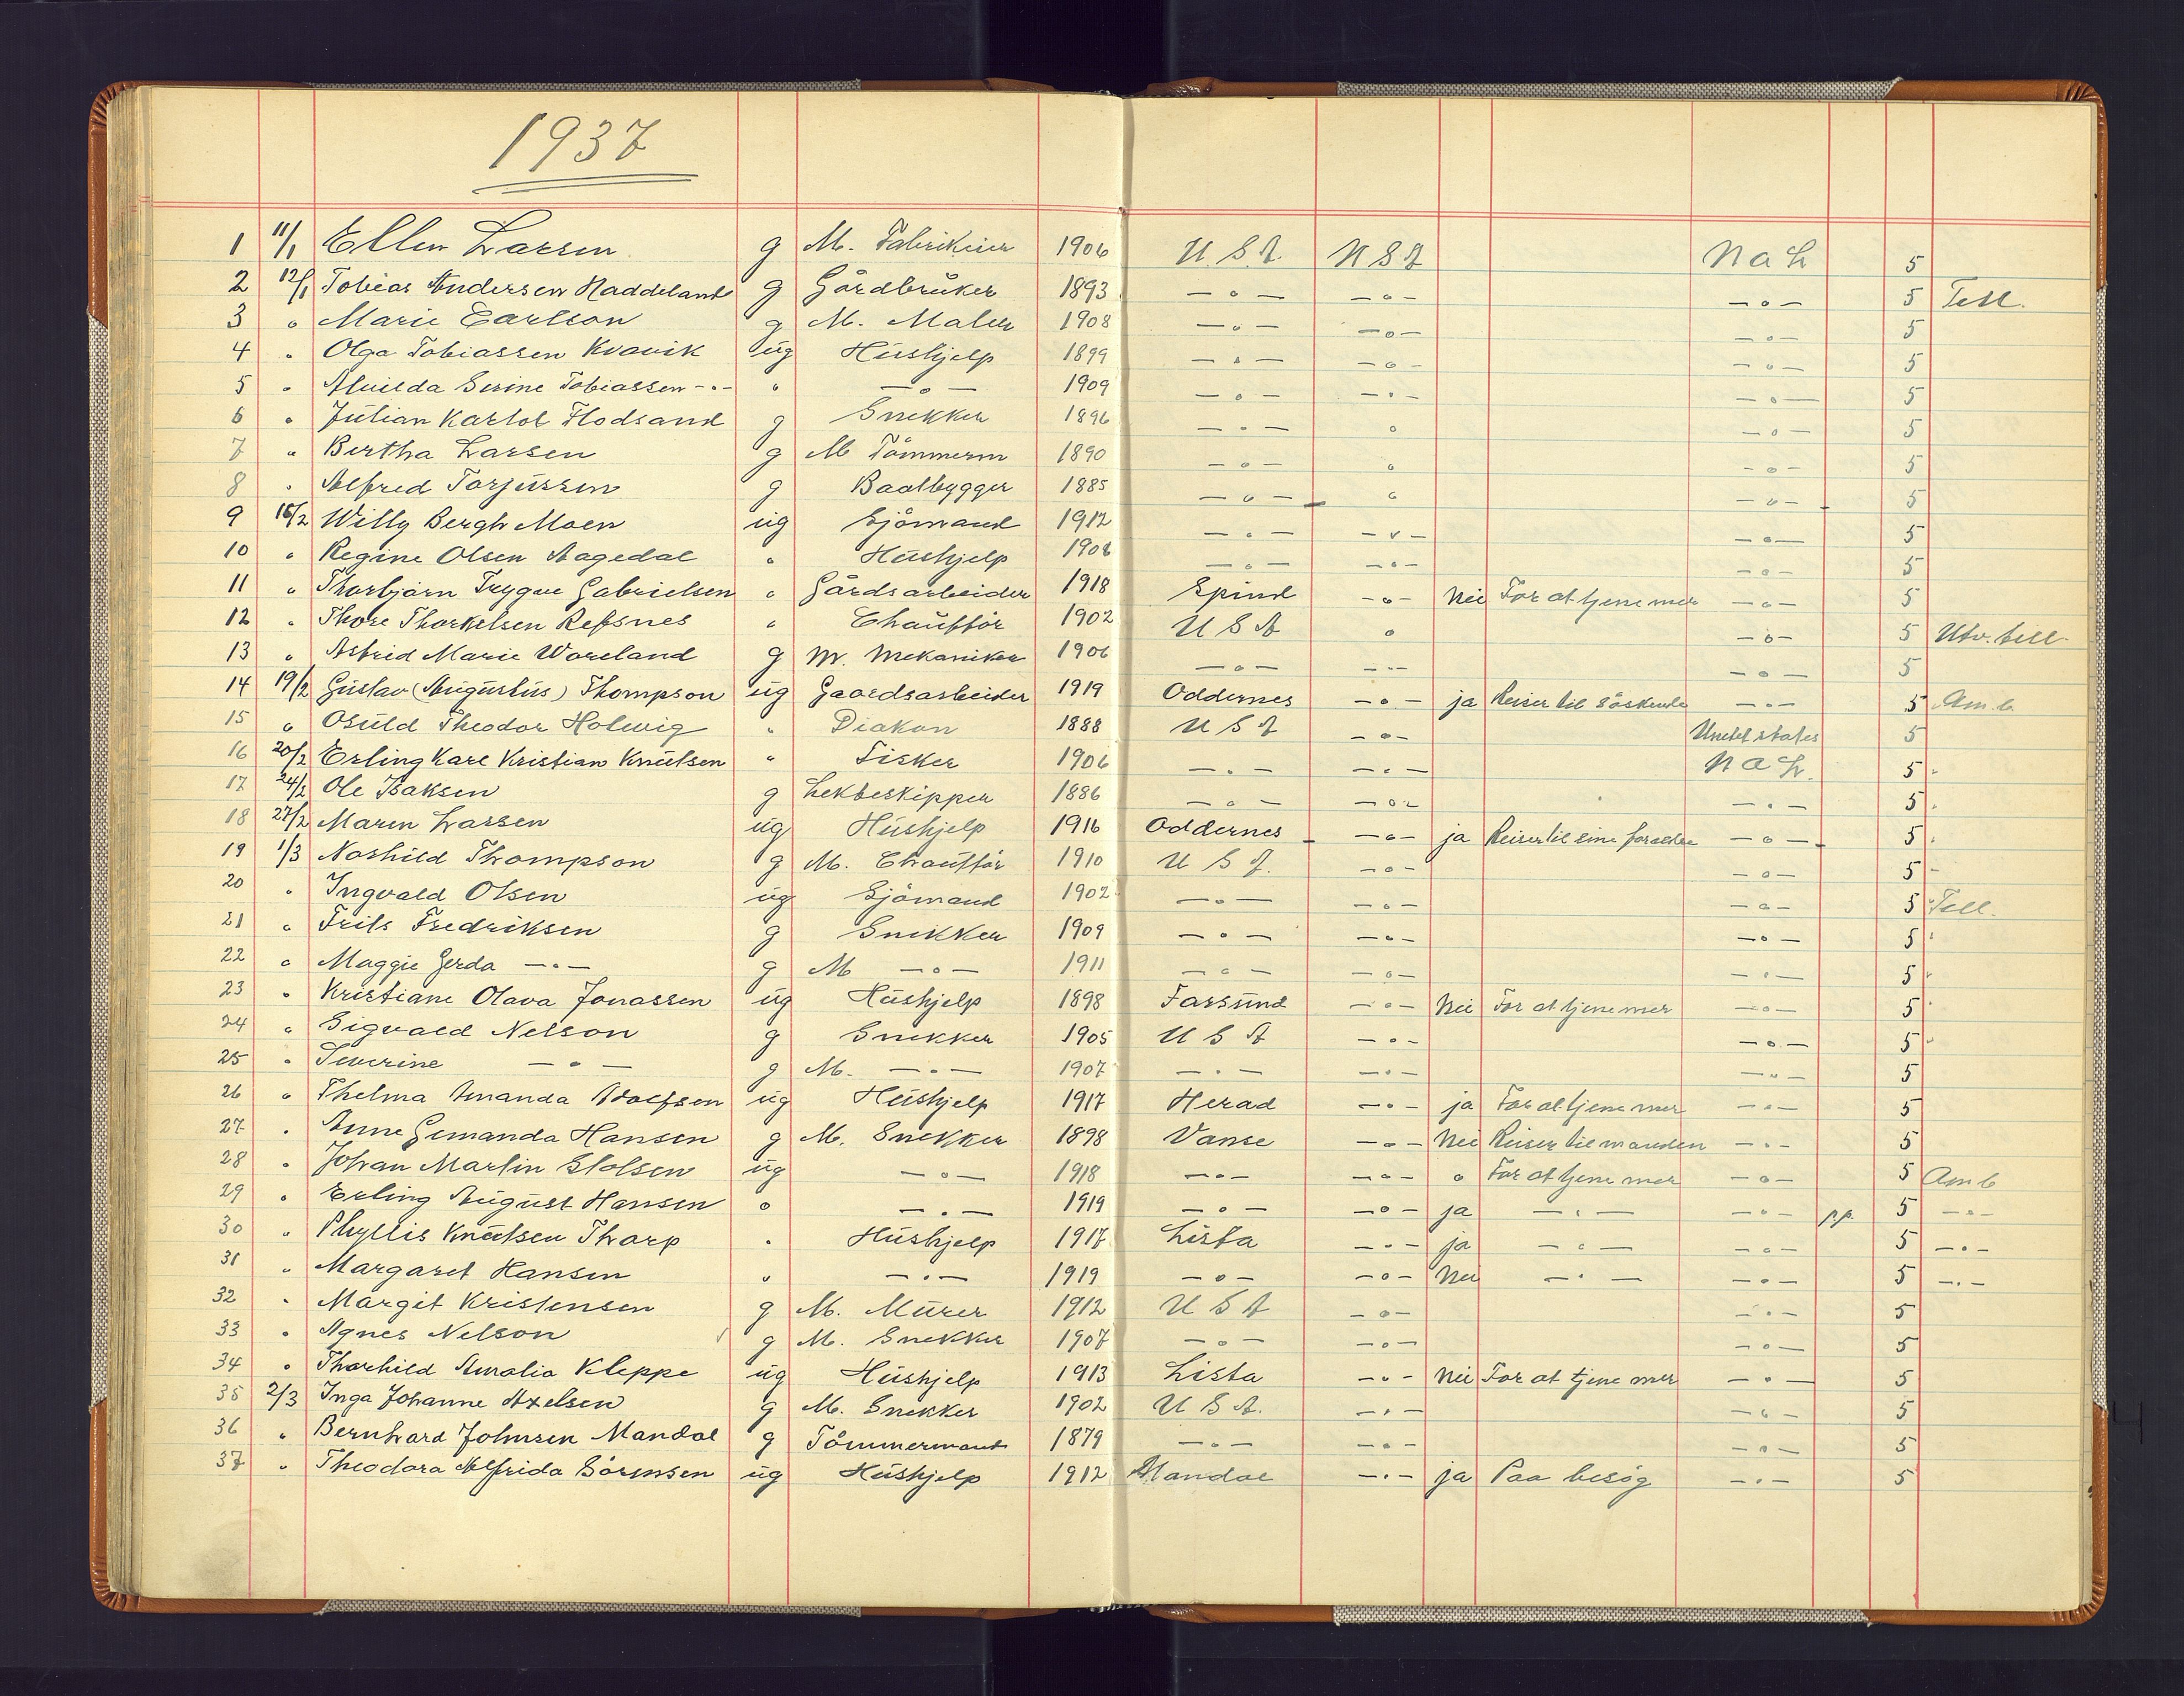 1937
1 11/1 Ellen Larsen g M. Fabrikeier 1906 U.S.A. U S A N a L 5
2 12/1 Tobias Andersen Haddeland g Gårdbruker 1893 — o — — o — — o — 5 Tell.
3 " Marie Carlson g M. Maler 1908 — o — — o — — o — 5
4 " Olga Tobiassen Kvavik ug Hushjelp 1899 — " — — o — — o — 5
5 " Alvilda Serine Tobiassen — " — " — o — 1909 — o — — " — — o — 5
6 " Julian Karlot Flodsand g Snekker 1896 — " — o — o — 5
7 " Bertha Larsen g M Tömmerm 1890 — o — o — o — 5
8 " Alfred Torjussen g Baatbygger 1885 — o — o — o — 5
9 16/2 Willy Bergh Moen ug Sjömand 1912 — " — — " — — o — 5
10 " Regine Olsen Aagedal " Hushjelp 1908 — o — — o — — o — 5
11 " Thorbjørn Trygve Gabrielsen " Gårdsarbeider 1918 Spind — o — Nei For at tjene mer — o — 5
12 " Thore Thorkelsen Refsnes " Chaufför 1902 U S A o — o — 5 Utv. tell.
13 " Astrid Marie Woreland g M. Mekaniker 1906 — o — — " — — o — 5
14 19/2 Gustav (Augustus) Thompson ug Gaardsarbeider 1919 Oddernes — o — ja Reiser til söskende — " — 5 Amb.
15 " Osuld Theodor Holwig " Diakon 1888 U S A — o — United states 5
16 20/2 Erling Kare Kristian Knutsen " Fisker 1906 — " — — " — N a L. 5 "
17 24/2 Ole Isaksen g Lekteskipper 1886 — o — — o — — " — 5 "
18 27/2 Maren Larsen ug Hushjelp 1916 Oddernes — o — ja Reiser til sine forældre — o — 5 "
19 1/3 Noshild Thompson g M. Chaufför 1910 U S A. — o — — o — 5 "
20 " Ingvald Olsen ug Sjömand 1902 — o — — o — — o — 5 Tell.
21 " Frits Fredriksen g Snekker 1909 — o — — o — — o — 5 "
22 " Maggie Gerda — " — g M — o — 1911 — o — — o — — " — 5 "
23 " Kristiane Olava Jonassen ug Hushjelp 1898 Farsund — o — Nei For at tjene mer — o — 5 "
24 " Sigvald Nelson g Snekker 1905 U S A — o — — o — 5 "
25 " Severine — o — g M. — o — 1907 — " — — " — — " — 5
26 " Thelma Amanda Adolfsen ug Hushjelp 1917 Herad — " — ja For at tjene mer — " — 5
27 " Anne Gemanda Hansen g M. Snekker 1898 Vanse — o — Nei Reiser til manden — " — 5
28 " Johan Martin Stolsen ug — o — 1918 — o — — o — o For at tjene mer — o — 5 Amb
29 " Erling August Hansen o — " — 1919 — o — — o — ja — " — — o — p.p. 5 — o —
30 " Phyllis Knutsen Tharp " Hushjelp 1917 Lista — " — ja — o — — o — 5 — " —
31 " Margaret Hansen " — " — 1919 — o — — o — Nei — " — — o — 5 — " —
32 " Margit Kristensen g M. Murer 1912 U S A — o — — " — 5
33 " Agnes Nelson g M. Snekker 1907 — o — — o — — o — 5
34 " Thorhild Amalia Kleppe ug Hushjelp 1913 Lista — " — Nei For at tjene mer — " — 5
35 2/3 Inga Johanne Axelsen g M. Snekker 1902 U S A. — " — — o — 5
36 " Bernhard Johnsen Mandal g Tömmermand 1879 — o — — o — — o — 5
37 " Theodora Alfrida Sörensen ug Hushjelp 1912 Mandal — " — ja Paa besög — " — 5